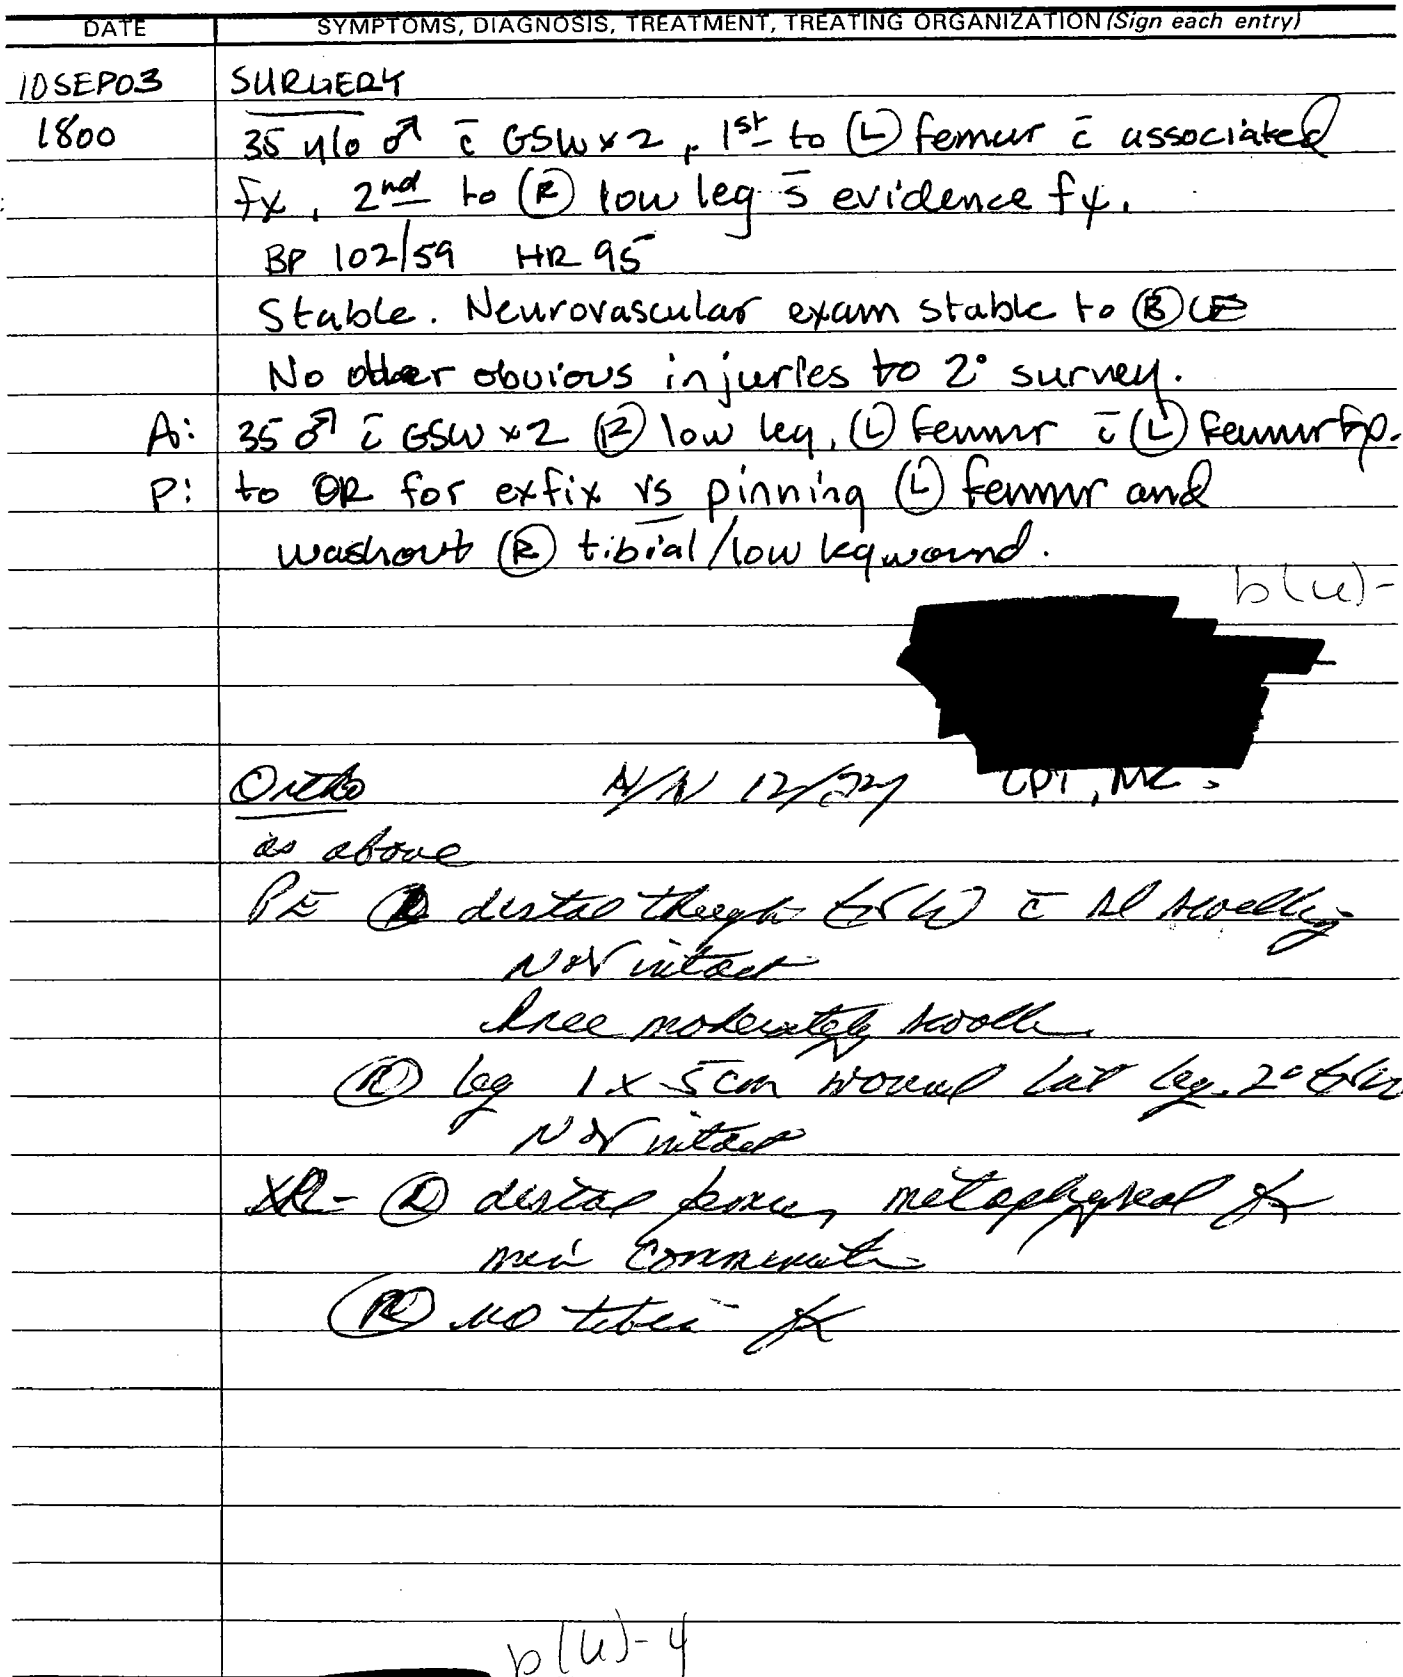 DATE SYMPTOMS, DIAGNOSIS, TREATMENT, TREATING ORGANIZATION (Sign each entry)
10SEP03 SURGERY
1800 35 y/o ♂ c̄ GSW x 2, 1st to (L) femur c̄ associated
fx, 2nd to (R) low leg s̄ evidence fx.
BP 102/59 HR 95
Stable. Neurovascular exam stable to (B) LE
No other obvious injuries to 2° survey.
A: 35 ♂ c̄ GSW x2 (R) low leg, (L) femur c̄ (L) femur
P: to OR for exfix vs pinning (L) femur and
washout (R) tibial/low leg wound.
CPT, MC
Ortho
as above
PE distal thigh GSW c̄ swelling
NV intact
knee moderately swollen
(R) leg 1 x 5cm wound lat leg. 2° GSW
NV intact
XR- (L) distal femur metaphyseal fx
(R) no tibia fx